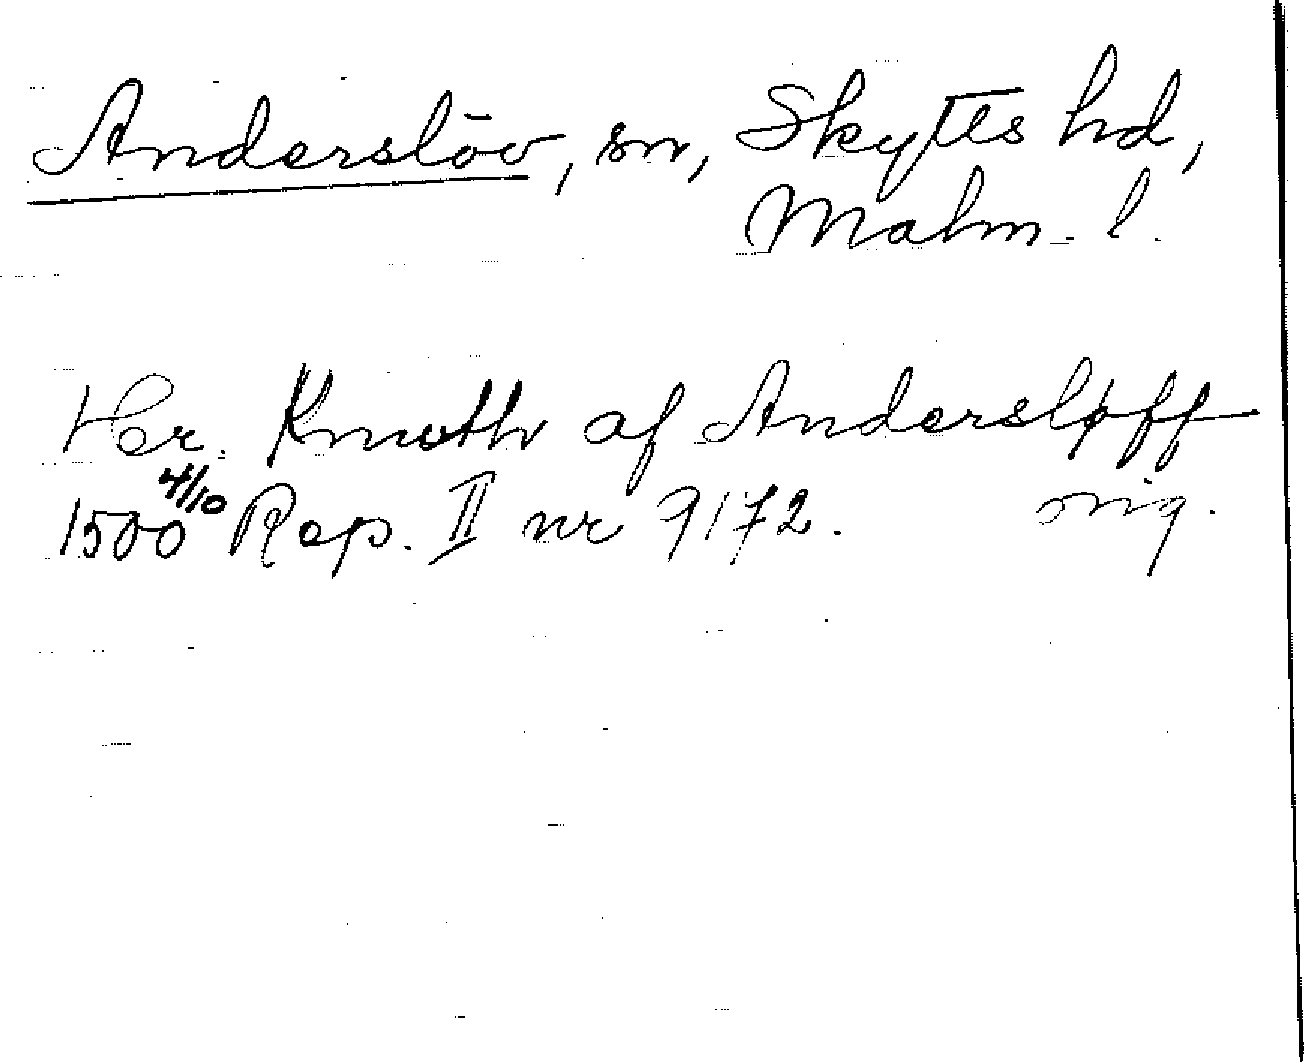 Anderslöv, sn, Skytts hd,
Malm. l.
Her Knuth af Andersløff
1500 4/10 Rep. II nr 9172. orig.